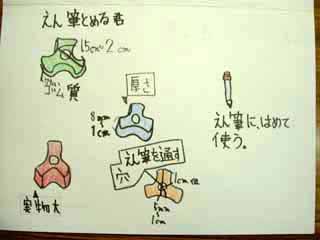 えん筆とめる君
1.5cm~2cm
ゴム質
厚さ
8mm
1cm
えん筆に、はめて
使う。
えん筆を通す
穴
1cm
8mm
1cm
実物大